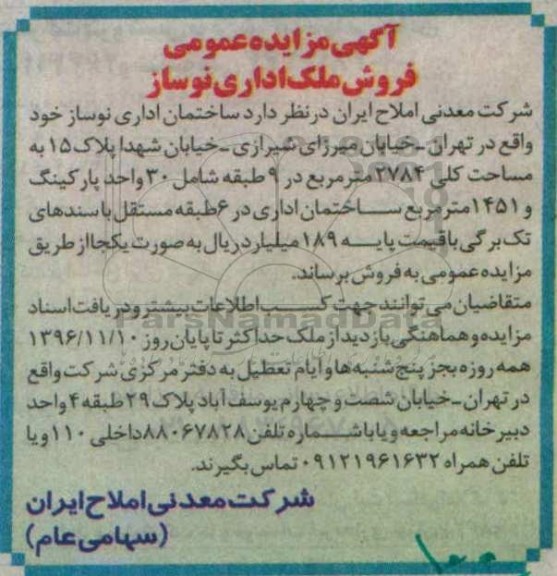 آگهی مزایده عمومی
فروش ملک اداری نوساز
شرکت معدنی املاح ایران درنظر دارد ساختمان اداری نوساز خود
واقع در تهران - خیابان میرزای شیرازی - خیابان شهدا پلاک ۱۵ به
مساحت کلی ۲۷۸۴ مترمربع در ۹ طبقه شامل ۳۰ واحد پارکینگ
و ۱۴۵۱ مترمربع ساختمان اداری در ۶ طبقه مستقل با سندهای
تک برگی با قیمت پایه ۱۸۹ میلیارد ریال به صورت یکجا از طریق
مزایده عمومی به فروش برساند.
متقاضیان می توانند جهت کسب اطلاعات بیشتر و دریافت اسناد
مزایده و هماهنگی بازدید از ملک حداکثر تا پایان روز ۱۳۹۶/۱۱/۱۰
همه روزه بجز پنج شنبه ها و ایام تعطیل به دفتر مرکزی شرکت واقع
در تهران - خیابان شصت و چهارم یوسف آباد پلاک ۲۹ طبقه ۴ واحد
دبیرخانه مراجعه و یا با شماره تلفن ۸۸۰۶۷۸۲۸ داخلی ۱۱۰ و یا
تلفن همراه ۰۹۱۲۱۹۶۱۶۳۲ تماس بگیرند.
شرکت معدنی املاح ایران
(سهامی عام)
ParsNamadData